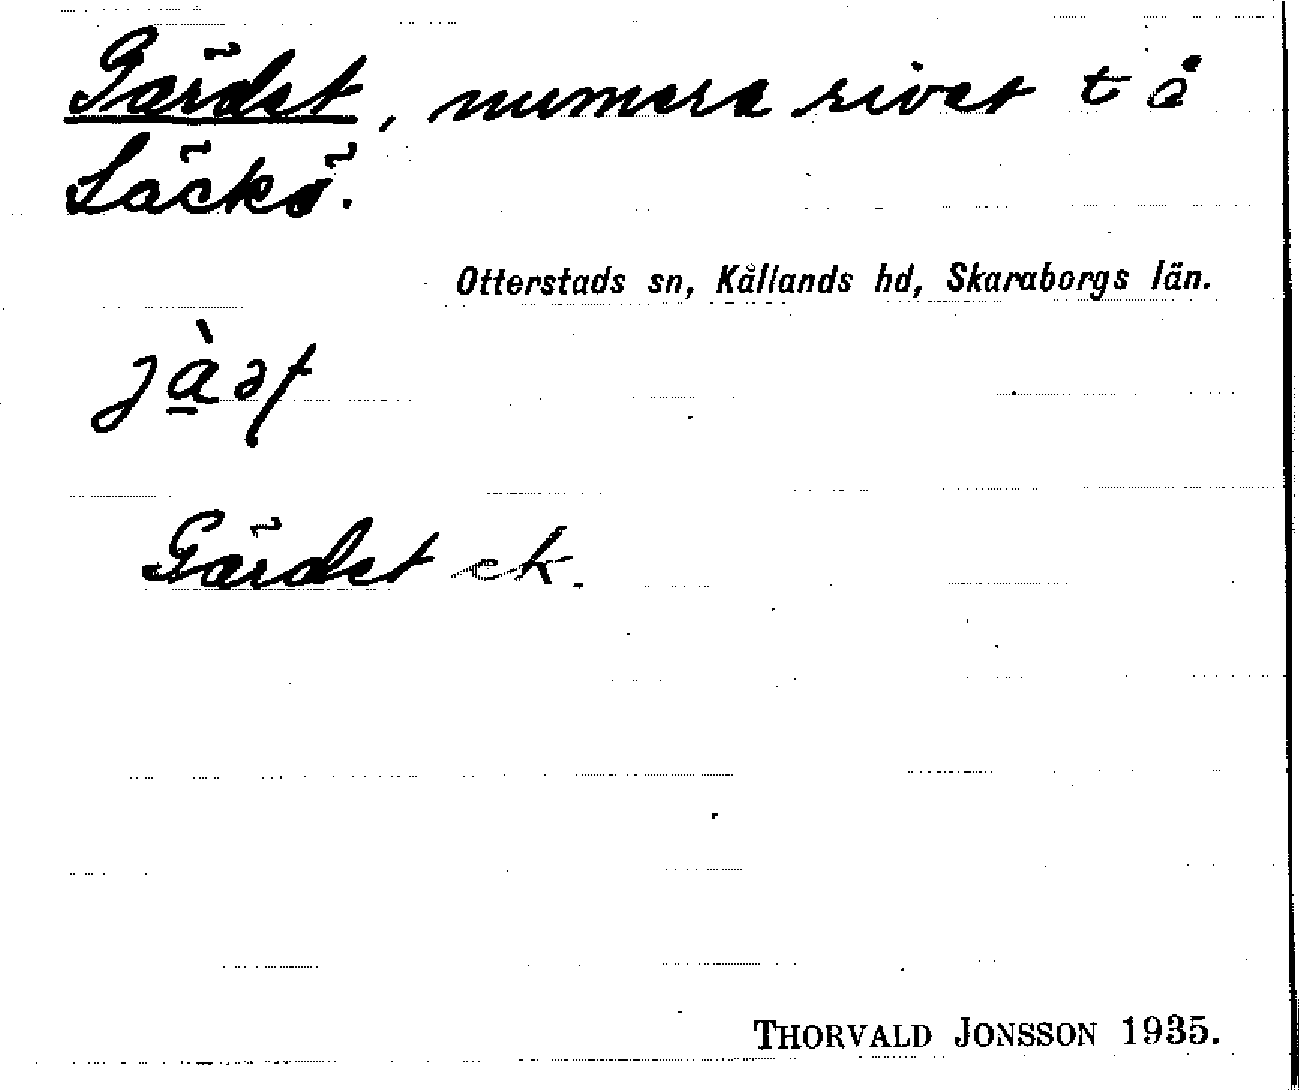 Gärdet, numera rivet t å
Läckö.
Otterstads sn, Kållands hd, Skaraborgs län.
Gärdet ek.
THORVALD JONSSON 1935.